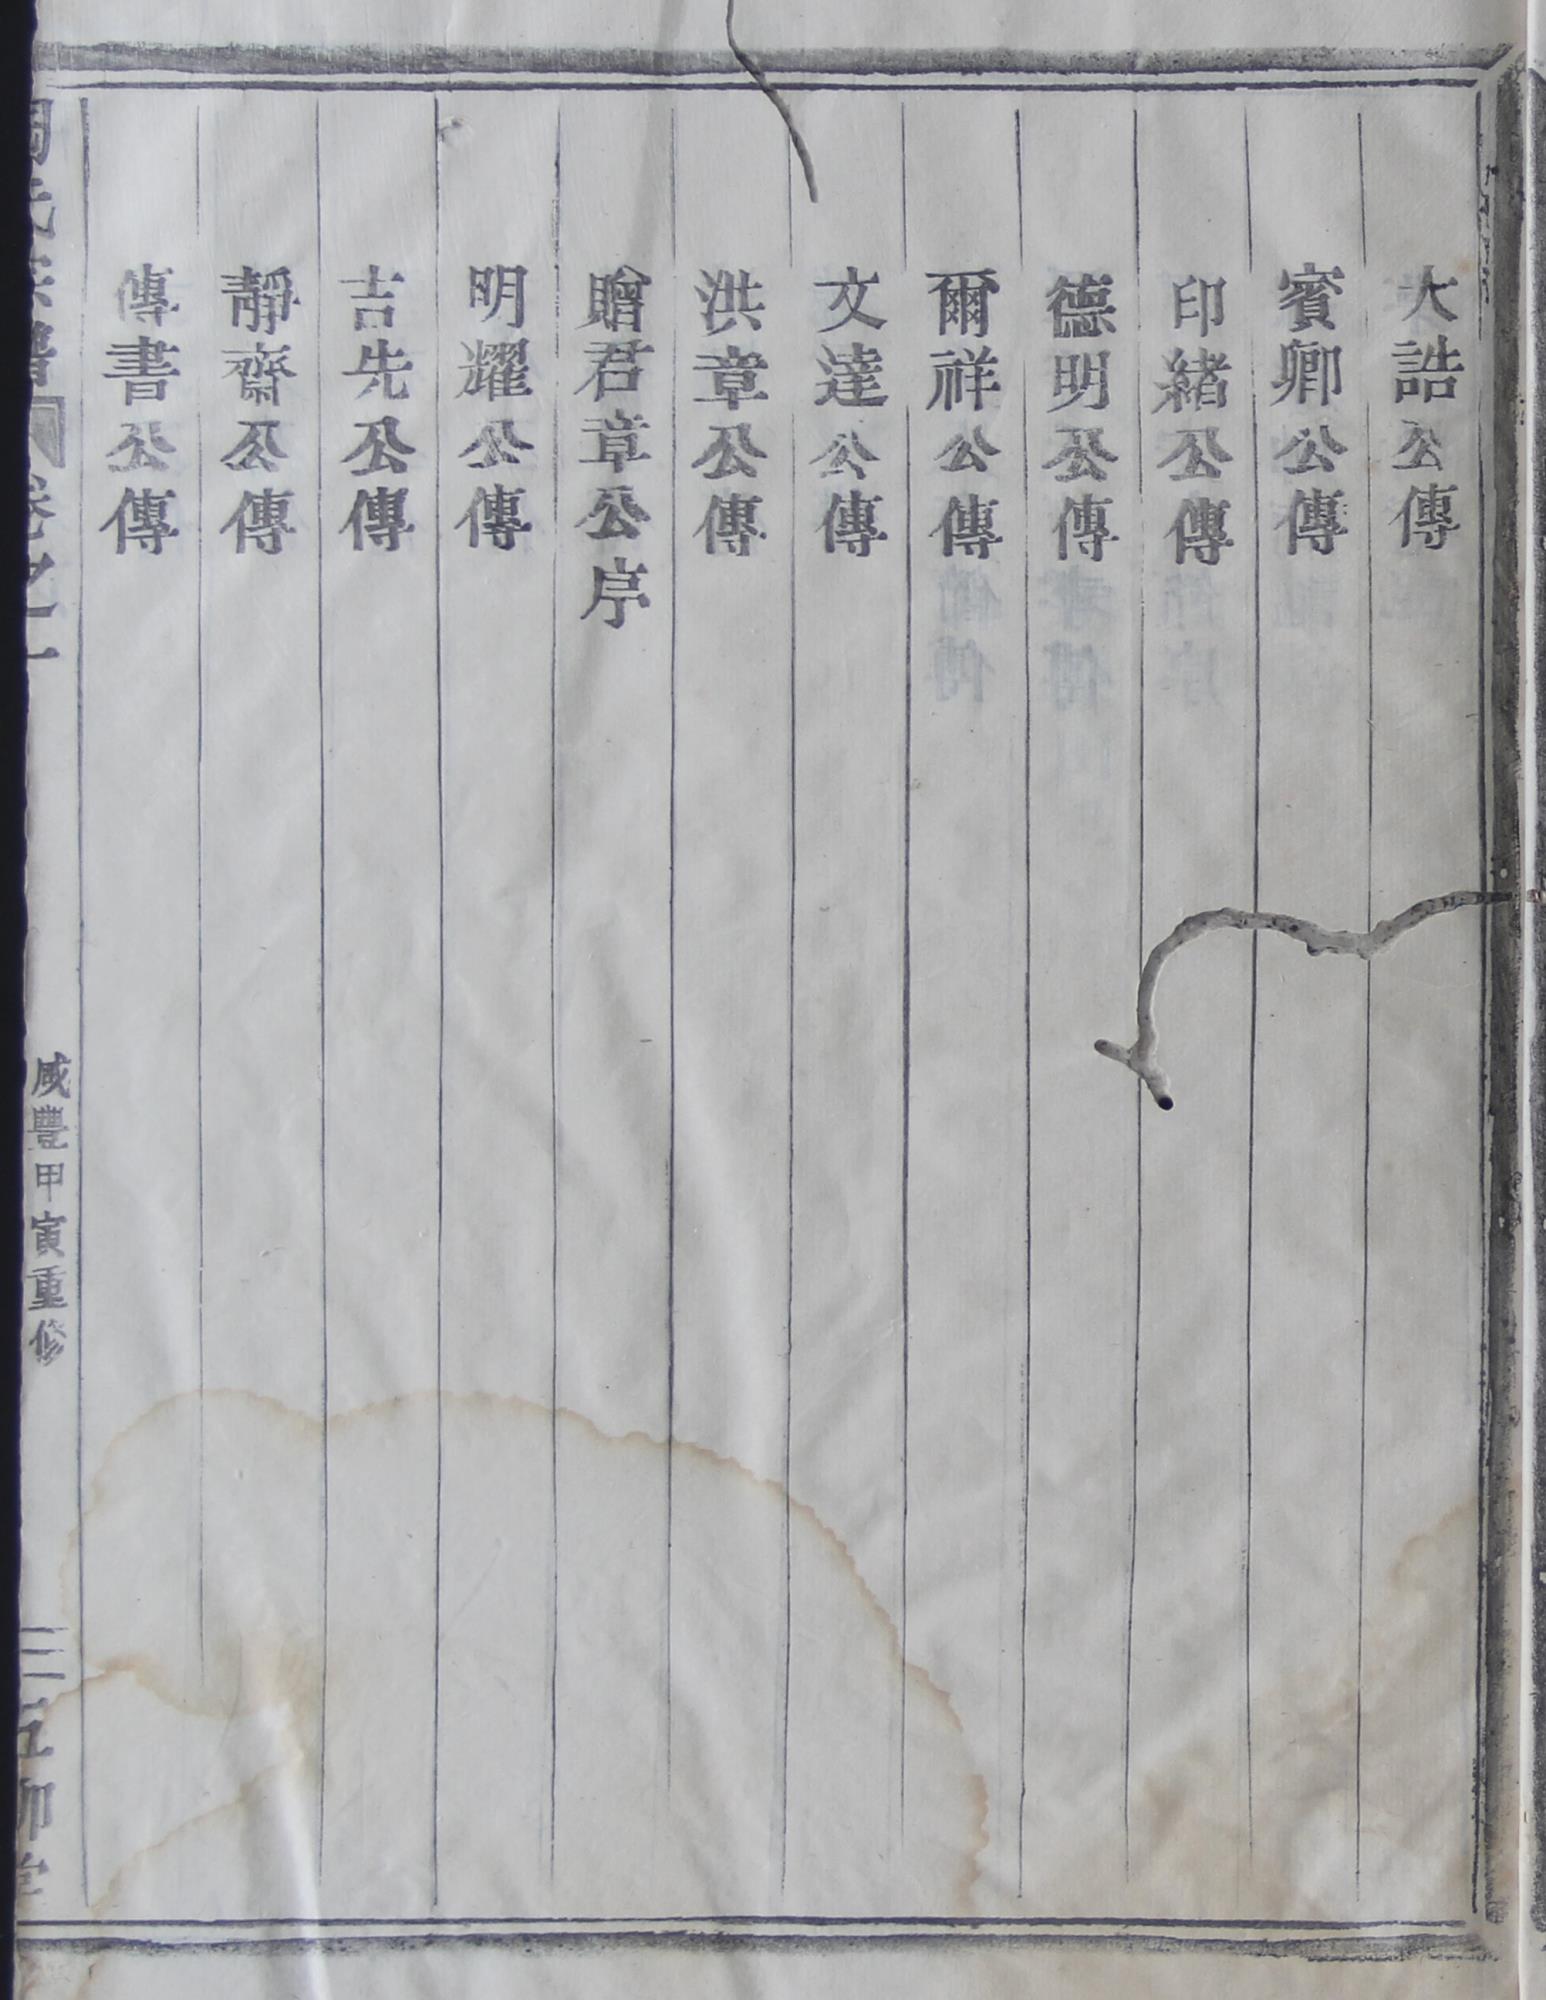 大誥公傳
賓卿公傳
印緒公傳
德明公傳
爾祥公傳
文達公傳
洪章公傳
贈君章公序
明耀公傳
吉先公傳
靜齋公傳
傳書公傳
氏宗譜 卷之一 咸豐甲寅重修 三 五柳堂